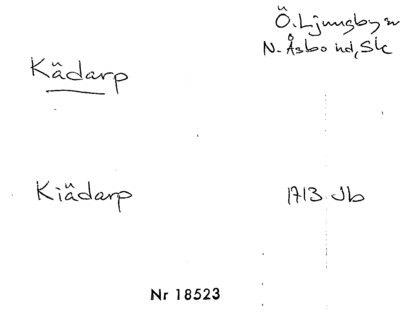 Ö. Ljungby sn
N. Åsbo hd, Sk
Kädarp
Kiädarp
1713 Jb
Nr 18523